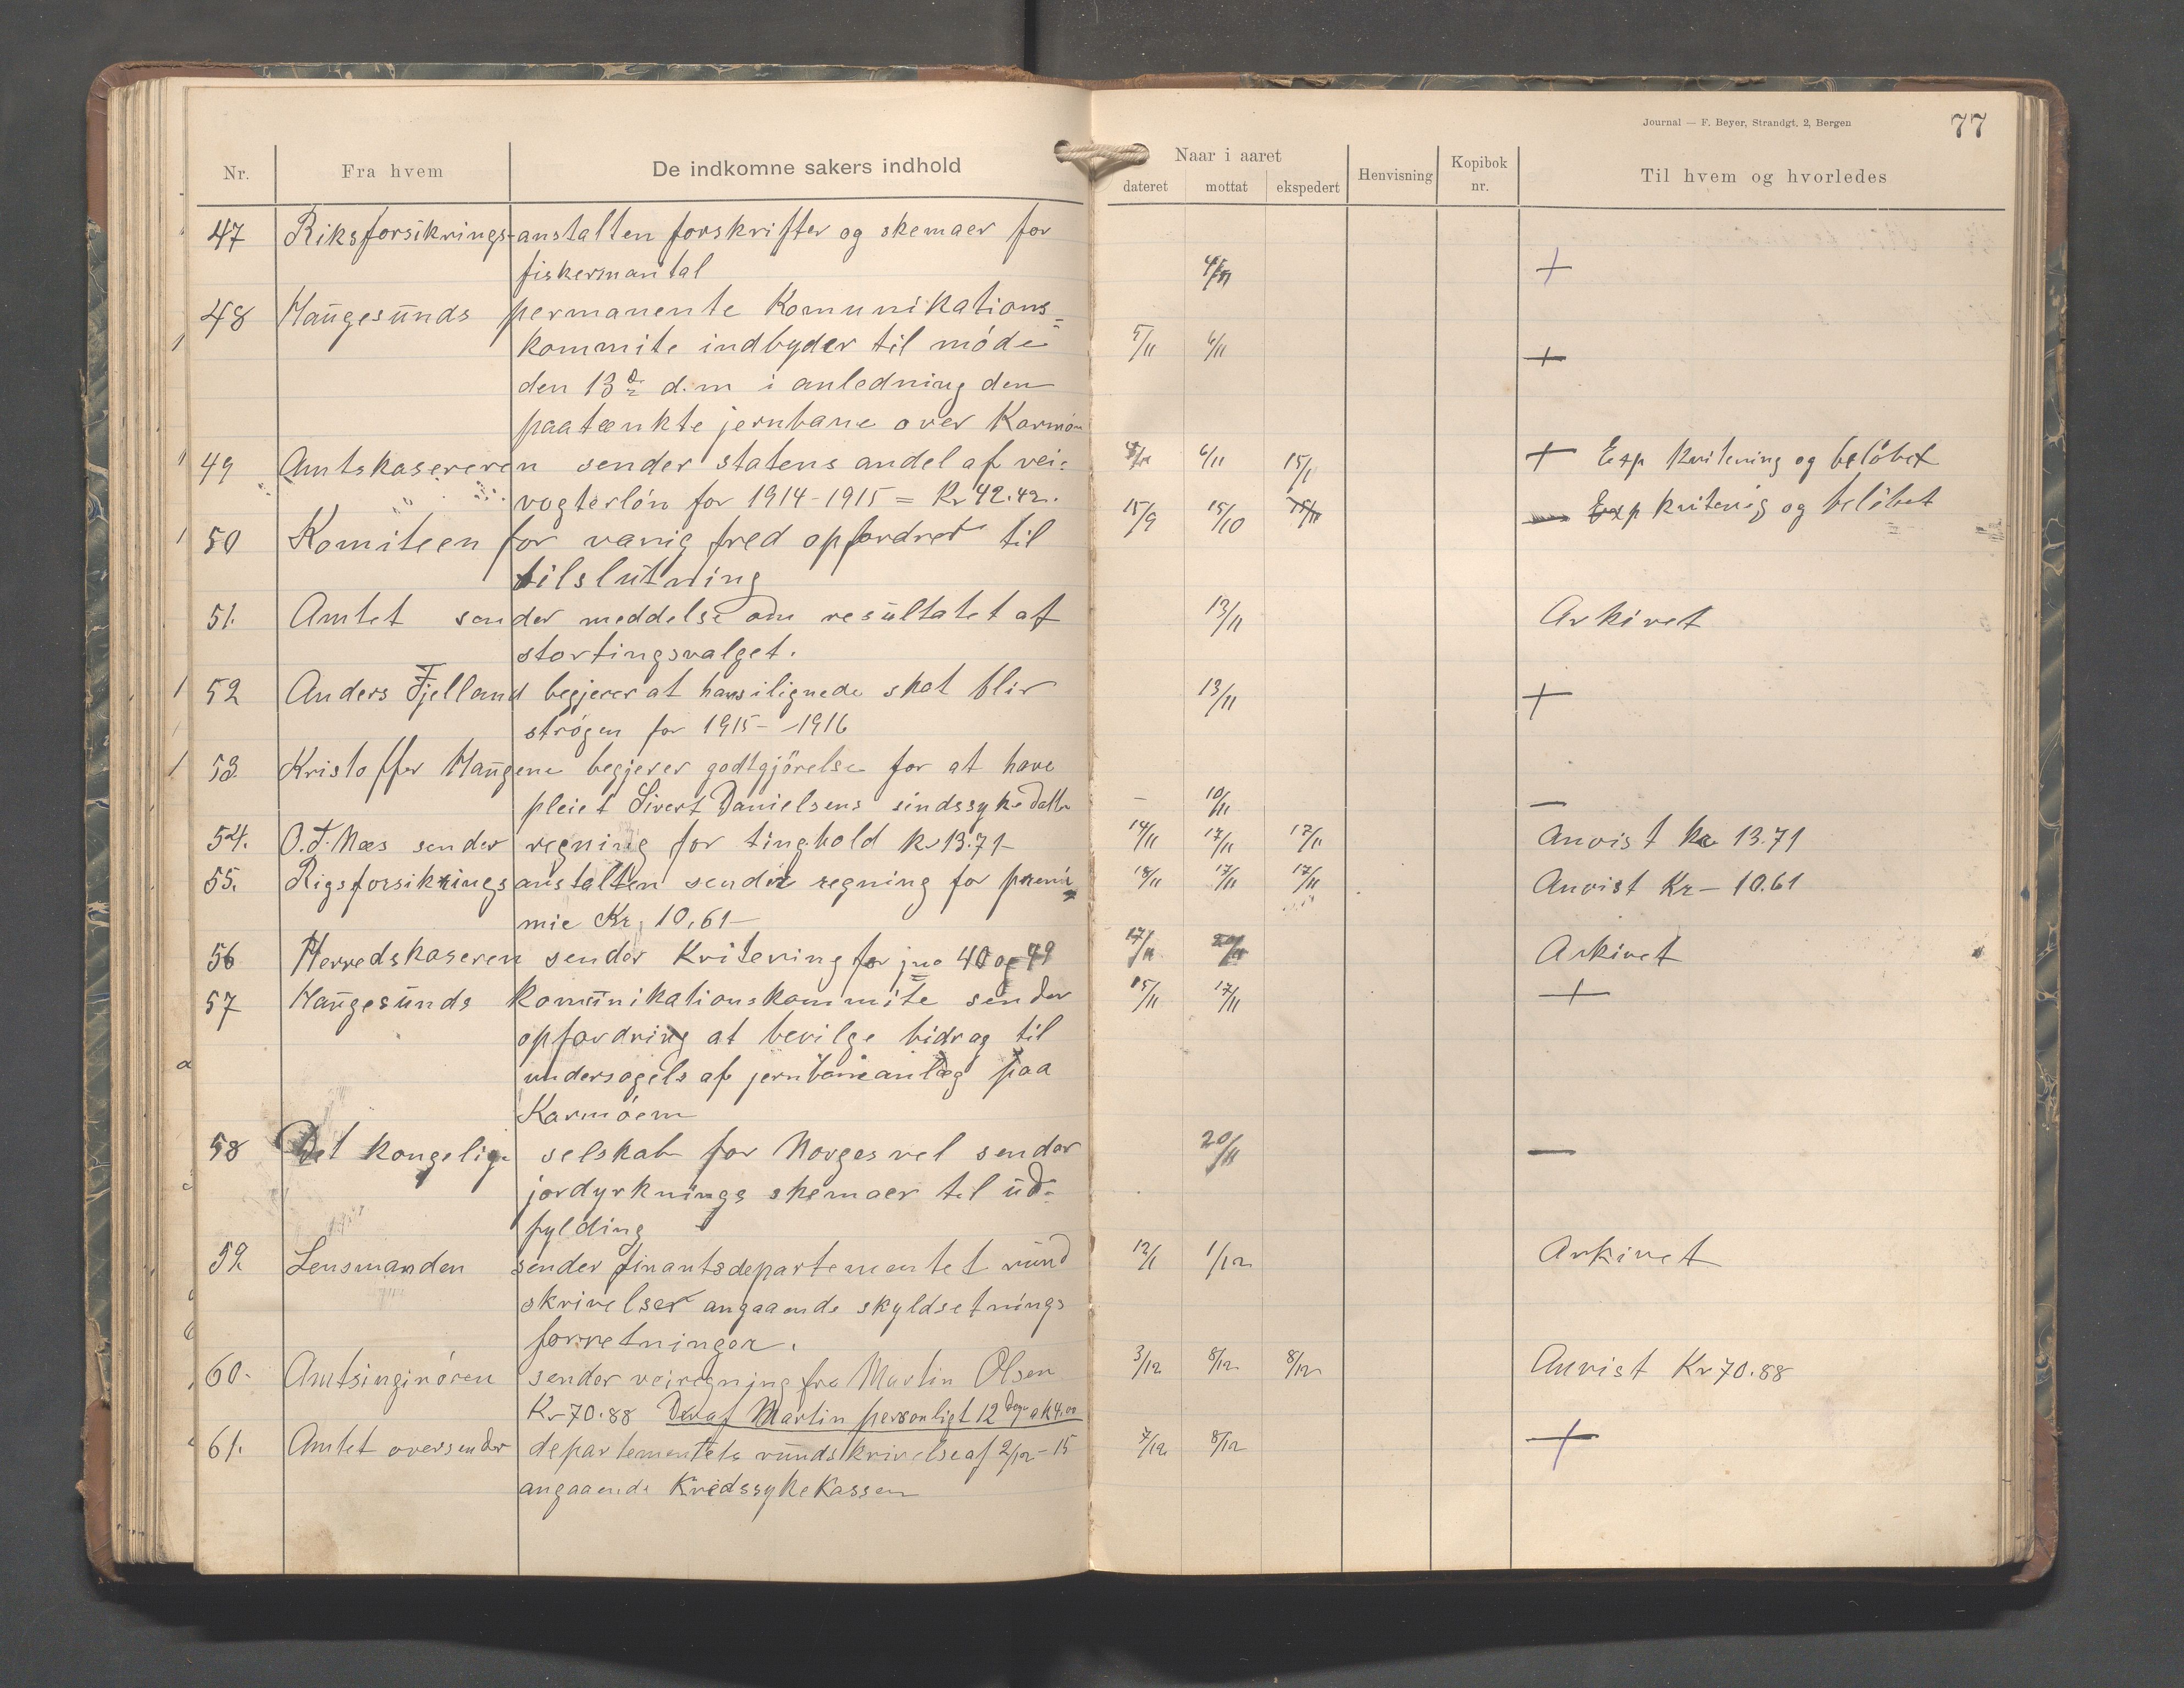 Journal — F. Beyer, Strandgt. 2, Bergen
77
Nr. Fra hvem De indkomne sakers indhold Naar i aaret dateret mottat ekspedert Henvisning Kopibok nr. Til hvem og hvorledes
47 Riksforsikrings-anstalten forskrifter og skemaer for
fiskermantal 4/11 +
48 Haugesunds permanente Komunikations=
kommite indbyder til møde 5/11 6/11 +
den 13de d.m i anledning den
paatænkte jernbane over Karmøen
49 Amtskasereren sender statens andel af vei= 6/11 15/1 + Exp kvitening og beløbet
vogterløn for 1914-1915 = Kr 42.42. 15/9 15/10 15/11 — Exp kvitenig og beløbet
50 Komiteen for varig fred opfordrer til
tilslutning
51. Amtet sender meddelse om resultatet af 13/11 Arkivet
stortingsvalget.
52 Anders Fjelland begjerer at hans ilignede skat blir 13/11 +
strøgen for 1915-1916
53 Kristoffer Haugene begjerer godtgjörelse for at have
pleiet Sivert Danielsens sindssyke datter — 10/11 —
54. O.T. Næs sender regning for tinghold Kr 13.71 14/11 17/11 17/11 Anvist kr 13.71
55. Rigsforsikringsanstalten sender regning for præmi= 18/11 17/11 17/11 Anvist Kr — 10.61
mie Kr. 10.61—
56 Herredskaseren sender Kvitering for jno 40 og 49 17/11 20/11 Arkivet
57 Haugesunds Komunikationskommite sender 15/11 17/11 +
opfordring at bevilge bidrag til
undersøgels af jernbaneanlæg paa
Karmøem
58 Det kongelige selskab for Norges vel sender 20/11 —
jordyrknings skemaer til ud=
fylding
59. Lensmanden sender finantsdepartementet rund 12/1 1/12 Arkivet
skrivelser angaaende skyldsetnings
forretninger.
60. Amtsinginøren sender veiregning fra Martin Olsen 3/12 8/12 8/12 Anvist Kr 70.88
Kr 70.88 Deraf Martin personligt 12 dage a K 4.00
61. Amtet oversender departementets rundskrivelse af 2/12-15 7/12 8/12 +
angaaende Kredssykekassen